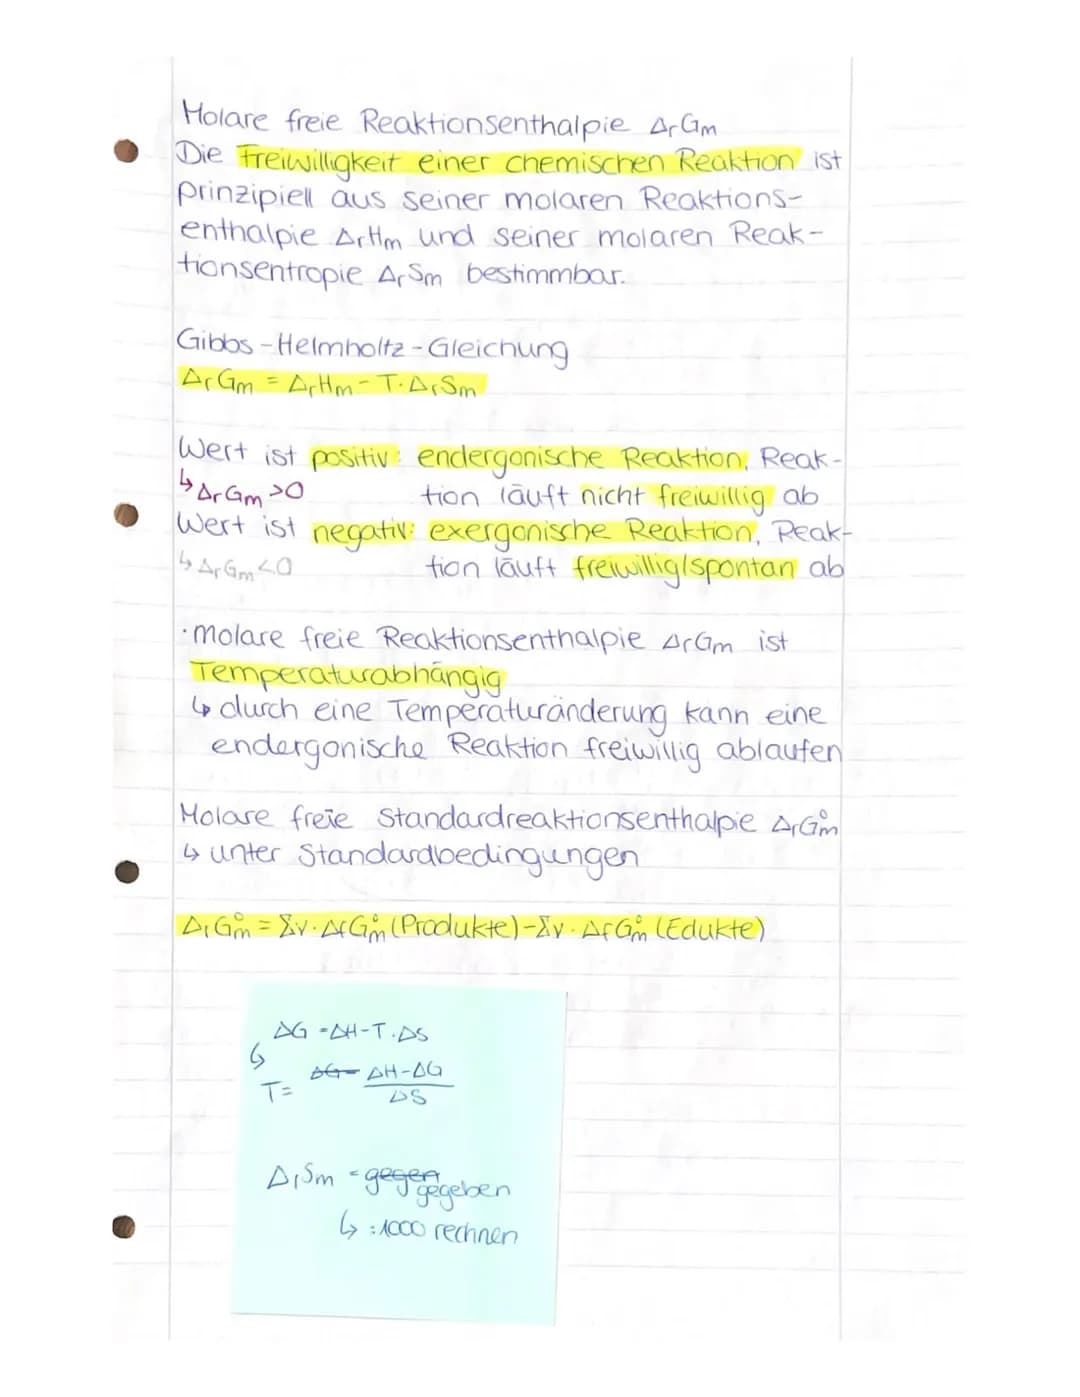 Molare freie Reaktionsenthalpie ΔrGm
Die Freiwilligkeit einer chemischen Reaktion ist
prinzipiell aus seiner molaren Reaktions-
enthalpie ΔrHm und seiner molaren Reak-
tionsentropie ΔrSm bestimmbar.
Gibbs-Helmholtz-Gleichung
ΔrGm = ΔrHm - T·ΔrSm
Wert ist positiv: endergonische Reaktion, Reak-
↳ ΔrGm >0 tion läuft nicht freiwillig ab
Wert ist negativ: exergonische Reaktion, Reak-
↳ ΔrGm <0 tion läuft freiwillig/spontan ab
· molare freie Reaktionsenthalpie ΔrGm ist
Temperaturabhängig
↳ durch eine Temperaturänderung kann eine
endergonische Reaktion freiwillig ablaufen
Molare freie Standardreaktionsenthalpie ΔrG°m
↳ unter Standardbedingungen
ΔrG°m = Σν·ΔfG°m (Produkte) - Σν·ΔfG°m (Edukte)
ΔG = ΔH - T·ΔS
↳
ΔG = ΔH-ΔG
T=
ΔS
ΔrSm = gegen gegeben
↳ :1000 rechnen